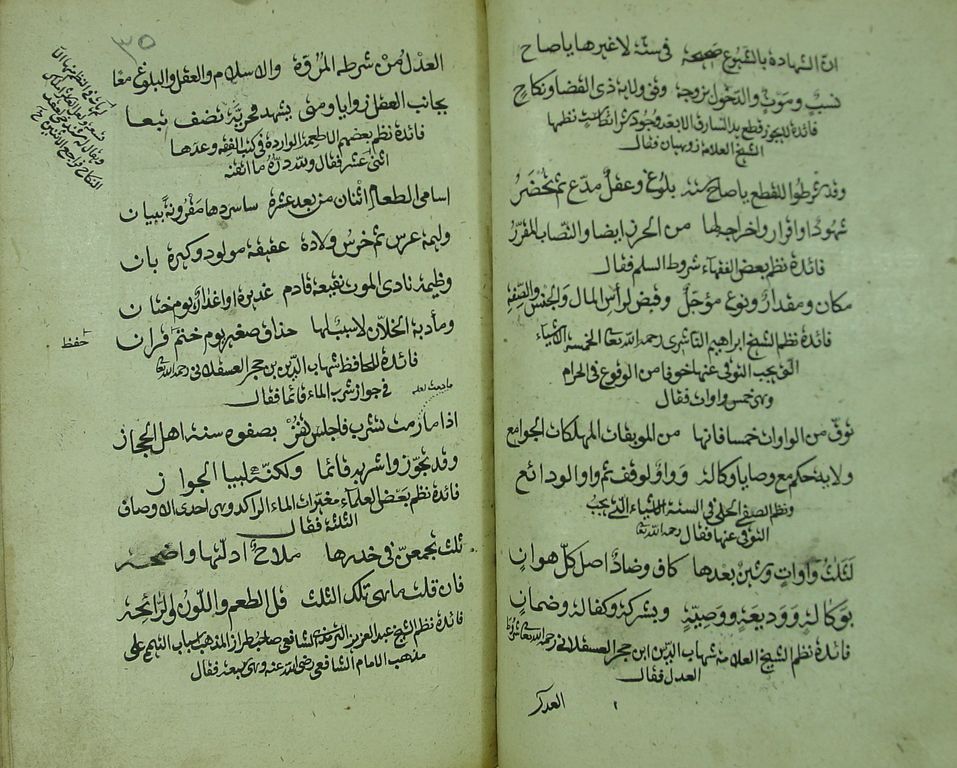 ان الشهادة بالشيوع صحيحة في ستة لا غيرها يا صاح
نسب وموت والدخول بزوجة وفي ولاية ذي القضا ونكاح
فائدة لا يجوز قطع يد السارق الا بعد وجود شرائط نظمها
الشيخ العلامة ابن وهبان فقال
وقد شرطوا للقطع يا صاح ستة بلوغ وعقل مدع ثم تحضر
شهود او اقرار واخراجه لها من الحرز ايضا والنصاب المقرر
فائدة نظم بعض الفقهاء شروط السلم فقال
مكان ومقدار ونوع مؤجل وقبض لرأس المال والجنس والصفه
فائدة نظم الشيخ ابراهيم الناشري رحمه الله تعا الخمسة الاشياء
التي يجب التوقي عنها خوفا من الوقوع في الحرام
وهي خمس واوات فقال
توق من الواوات خمسا فانها من الموبقات المهلكات الجوامع
ولاية حكم مع وصايا وكالة وواو لوقف ثم واو الودائع
ونظم الصفي الحلي في الستة الاشياء التي يجب
التوقي عنها فقال رحمه الله تعا
لثلث واوات وشين بعدها كاف وضاد اصل كل هوان
بوكالة ووديعة ووصية وبشركة وكفالة وضمان
فائدة نظم الشيخ العلامة شهاب الدين ابن حجر العسقلاني رحمه الله تعا شروط
العدل فقال
العدل
٣٥
العدل من شرطه المروة والاسلام والعقل والبلوغ معا
يجانب العقل زوايا ومتى يشهد فحرية تضف تبعا
فائدة نظم بعضهم الاطعمة الواردة في كتب الفقه وعدها
اثنى عشر فقال ولله دره ما اتقنه
اسامي الطعام اثنان من بعد عشرة ساسردها مقرونة ببيان
وليمة عرس ثم خرس ولادة عقيقة مولود وكيرة بان
وظيمة نادي الموت نقيعة قادم غديرة او اغذار يوم ختان
ومأدبة الخلان لا سبب لها حذاق صغير يوم ختم قران
حفظ
فائدة للحافظ شهاب الدين بن حجر العسقلاني رحمه الله تعا
في جواز شرب الماء قائما فقال
اذا ما رمت تشرب فاجلس تفز بصفوة سنة اهل الحجاز
وقد تجوز واشربه قائما ولكنه لبيان الجواز
فائدة نظم بعض العلماء مغيرات الماء الراكد وهي احدى الاوصاف
الثلثة فقال
ثلث تجمعن في خدرها ملاح ادلتها واضحه
فان قلت ما هي تلك الثلث قل الطعم واللون والرائحه
فائدة نظم الشيخ عبد العزيز الشافعي صاحب طراز المذهب اسباب التيمم على
مذهب الامام الشافعي رضي الله عنه وهي سبعة فقال